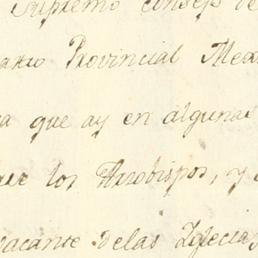 Supremo Consejo de
Provincial Mexi
que ay en algunas
los Arzobispos, y
vacante de las Iglecias